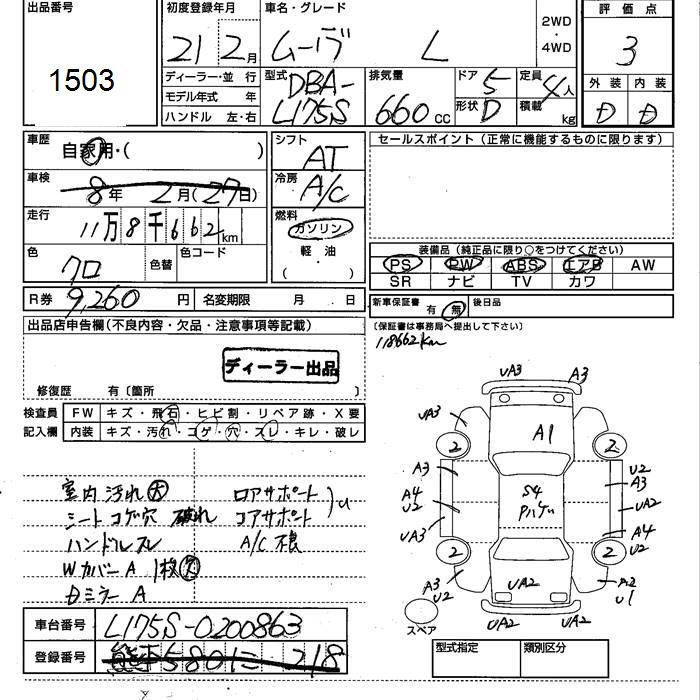 出品番号
1503
初度登録年月
21 2月
車名・グレード
ムーヴ L
2WD
・
4WD
評価点
3
ディーラー・並行
モデル年式 年
ハンドル 左・右
型式
DBA-
L175S
排気量
660 cc
ドア 5
形状 D
定員 4人
積載 kg
外装 内装
D D
車歴
自家用・( )
車検
8年 2月(27日)
走行
11万8千662km
色
クロ
色替
色コード
R券 9,260円 名変期限 月 日
シフト
AT
冷房
A/C
燃料
ガソリン
軽・油
( )
セールスポイント(正常に機能するものに限ります)
装備品(純正品に限り○をつけてください)
PS PW ABS エアB AW
SR ナビ TV カワ
新車保証書 有 無 後日品
(保証書は事務局へ提出して下さい)
118662km
出品店申告欄(不良内容・欠品・注意事項等記載)
ディーラー出品
修復歴 有〔箇所 〕
検査員
記入欄
FW キズ・飛石・ヒビ割・リペア跡・X要
内装 キズ・汚れ・コゲ・穴・スレ・キレ・破レ
室内汚れ大 ロアサポート
シートコゲ穴 破れ コアサポート
U
ハンドルスレ A/C不良
Wカバー A 1枚欠
Dミラー A
UA3 A3
UA3
A1
2 2
A3 U2
A3
A4
U2
S4
UA2
UA3 A4
U2
2 2
A3
U2
UA2
A2
U1
UA2 UA2
スペア
車台番号 L175S-0200863
登録番号 218
型式指定 類別区分